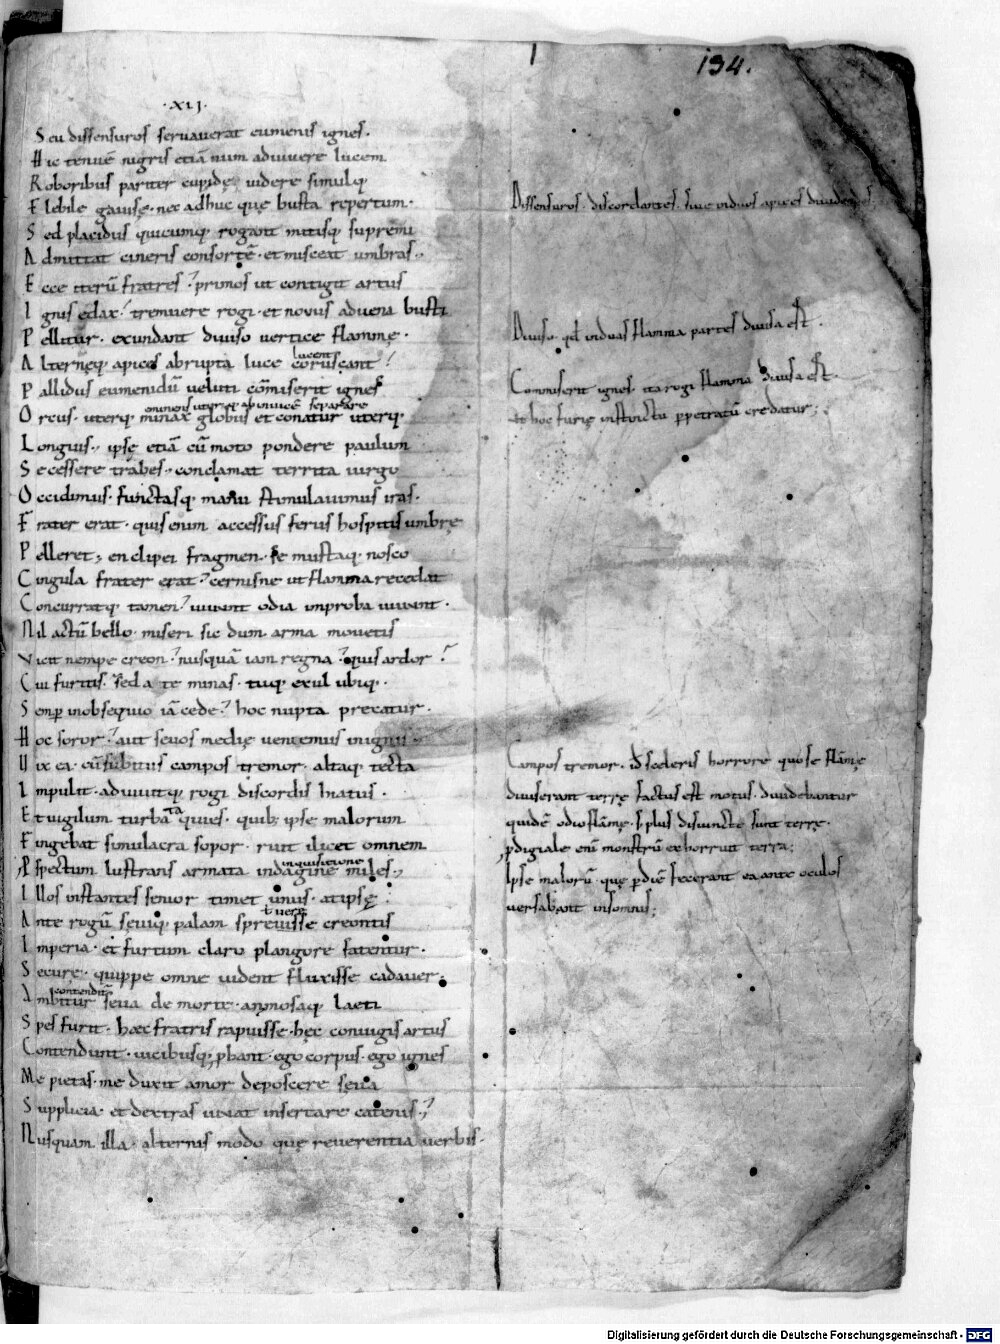 194.
·XIJ·
Seu dissensuros servaverat eumenis ignes.
Hic tenuē nigris etiā num advivere lucem
Roboribus pariter cupidę videre simulq
Flebile gavisę· nec adhuc quę busta repertum·
Sed placidus quicumq rogant mitisq supremi
Admittat cineris consortē· et misceat umbras·,
Ecce iterū fratres? primos ut contigit artus
Ignis edax? tremuere rogi· et novus advena busti
Pellitur· exundant diviso vertice flammę·
lucent
Alternęq apices abrupta luce coruscant?
Pallidus eumenidū veluti cōmiserit ignes
separare
Orcus· uterq minax globus et conatur uterq·
Longius·, ipsę etiā cū moto pondere paulum
Secessere trabes·, conclamat territa virgo
Occidimus· functasq manu stimulavimus iras·
Frater erat· quis enim accessus ferus hospitis umbrę
Pelleret·, en clipei fragmen· semustaq· nosco
Cingula frater erat? cernisne ut flamma recedat
Concurratq tamen? vivunt odia improba vivunt·
Nil actū bello· miseri sic dum arma movetis
Vicit nempe creon? nusquā iam regna? quis ardor?
Cui furitis· sed a te minas· tuq exul ubiq·
Semp in obsequio iā cede? hoc nupta precatur·
Hoc soror? aut sevos medię veniemus in ignis
Vix ea· cū subitus campos tremor· altaq tecta
Impulit· adiuvitq rogi discordis hiatus·
ta
Et vigilum turba quies· quib; ipse malorum
Fingebat simulacra sopor· ruit ilicet omnem
inquisitione
Pspectum lustrans armata indagine miles·,
Illos instantes senior timet unus· at ipsę?
Ante rogū sęviq· palam sprevisse creontis
Imperia· et furtum claro plangore fatentur·
Secure· quippe omne vident fluxisse cadaver·
contenditur
Ambitur seva de morte· animosaq laeti
Spes furit· hęc fratris rapuisse· hęc coniugis artus
Contendunt· vicibusq; pbant· ego corpus· ego ignes
Me pietas· me duxit amor deposcere seva
Supplicia· et dextras iuvat insertare catenis·,
Nusquam illa· alternis modo quę reverentia verbis·
Dissensuros· discordantes· sive in duos apices dividendos·
Diviso· qd in duas flamma partes divisa est·
Commiserit ignes· ita rogi flamma divisa est·
ut hoc furię instinctu ppetratū credatur·;
Campos tremor· id sceleris horrore quo se flāmę
diviserant terrę factus est motus· dividebantur
quidē odio flāmę· s; plus disiunctę sunt terrę·
pdigiale enī monstrū exhorruit terra;
Ipse malorū· quę p diē fecerant ea ante oculos
versabant in somnis;
Digitalisierung gefördert durch die Deutsche Forschungsgemeinschaft - DFG